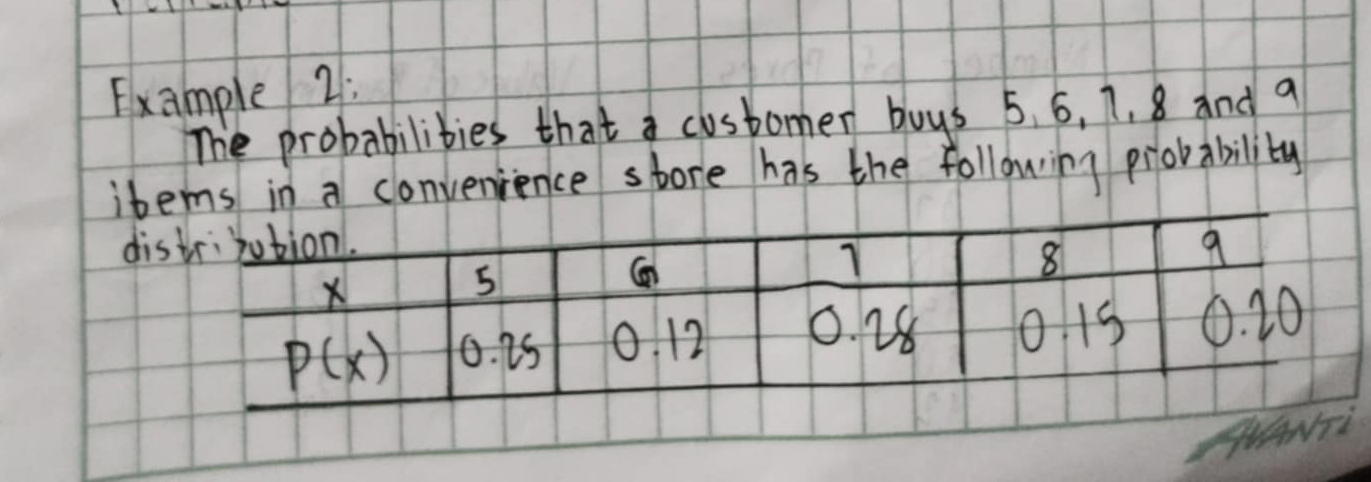 Example 2:
The probabilities that a customer buys 5, 6, 7, 8 and 9
items in a convenience store has the following probability
distribution.
X 5 6 7 8 9
P(x) 0.25 0.12 0.28 0.15 0.20
AVANTi